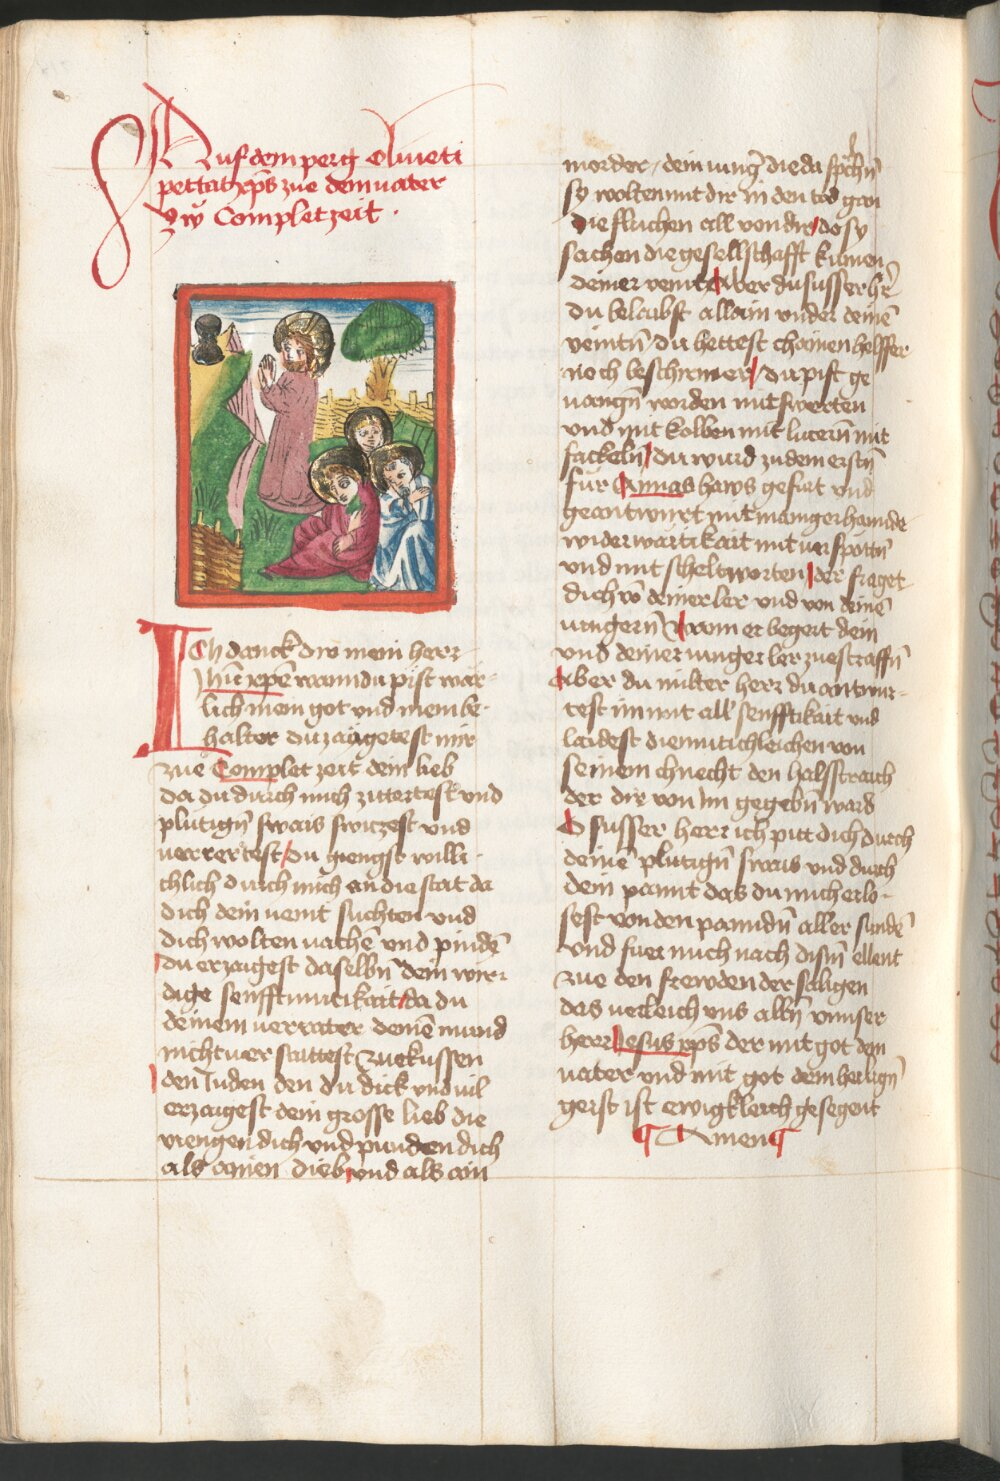 Auf dem perg Oliueti
pettat xp̄s zue dem vater
Zw̄ Complet zeit ·
Ich danck dir mein herr
Jhū xp̄e wann du pist wär-
lich mein got vnd mein be-
halter du zaigetest mir
zue Complet zeit dein lieb
da du durch mich zittertest vnd
plutign̄ swais swiczest vnd
rerrertest / du giengst willi-
chlich durch mich an die stat da
dich dein veint suchten vnd
dich wolten vachē vnd pindē
du erzaigest daselbn̄ dein wir-
dige senfftmutikait / da du
deinem verrater deinē mund
nicht versattest zuekussen
den Juden den du dick vnd vil
erzaigest dein grosse lieb die
viengen dich vnd punden dich
als ainen dieb / vnd als ain
morder / dein iunḡ die da sprachn̄
sy wolten mit dir in den tod gan
die fluchen all von dir / do sy
sachen die gesellschafft kumen
deiner veint Aber du susser h̄r
du belaibst allain vnder deinē
veintn̄ du hettest chainen helffer
noch beschirmer / du pist ge
uangn̄ worden mit swerten
vnd mit kolben mit lucern̄ mit
fackeln̄ / du wurd zu dem erstn̄
fur Annas haws gefurt vnd
geantwurt mit maniger hannde
widerwartikait mit verspottn̄
vnd mit scheltworten / der fraget
dich vō deiner ler vnd von deinē
iungern̄ wann er begert dein
vnd deiner iunger ler zuestraffn̄
Aber du milter herr du antwur-
test im mit all senfftikait vnd
laidest diemutichleichen von
seinem chnecht den halsstraich
der dir von im gegebn̄ ward
O susser herr ich pitt dich durch
deinē plutign̄ swais vnd durch
dein pannt das du mich erlo-
sest von den panndn̄ aller sundē
vnd fuer mich nach dism̄ ellent
zue den frewden der saligen
das verleich vns alln̄ vnnser
herr Jesus xp̄s der mit got dem
vater vnd mit got dem heilign̄
geist ist ewigkleich gesegent
Amen